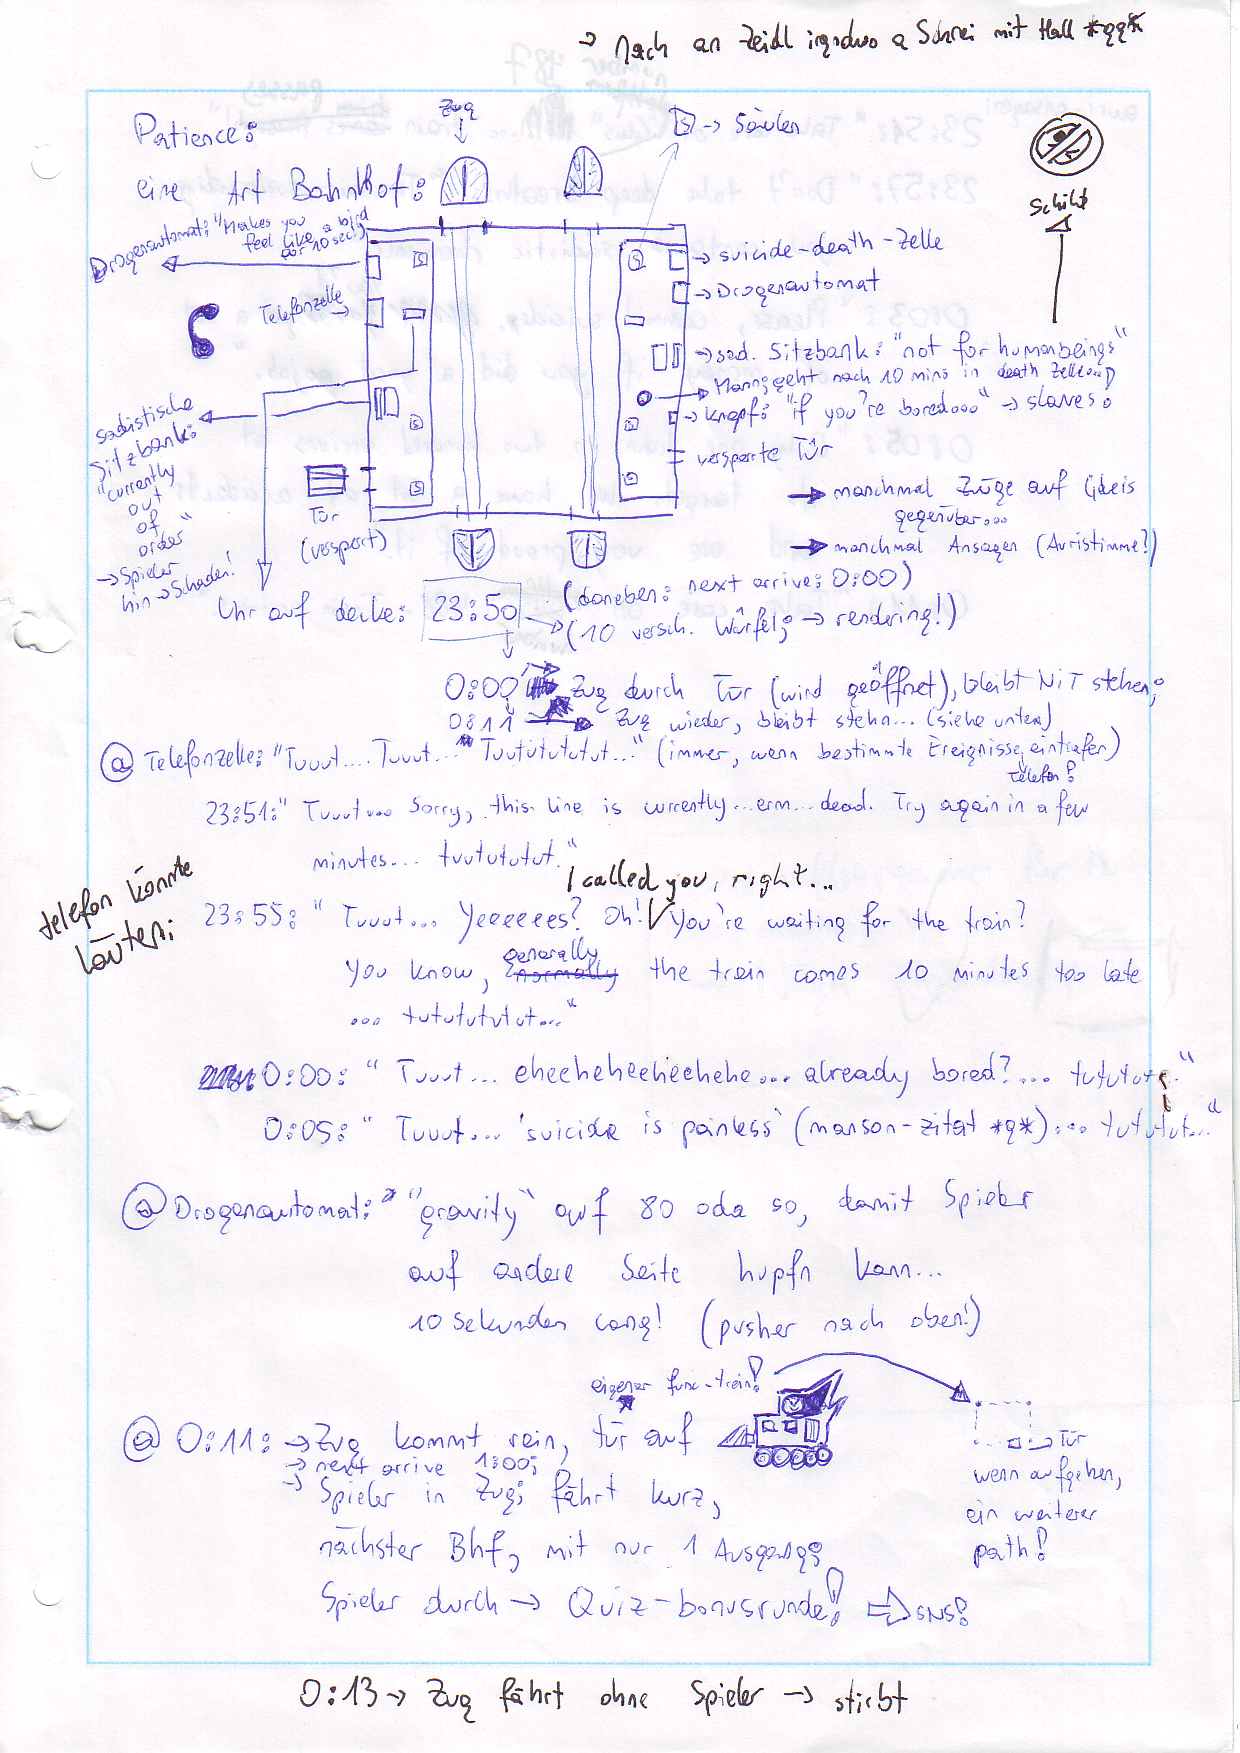 → Nach an Zeidl irgndwo a Schrei mit Hall *qq*
Patience:
Zug
S → Säulen
eine Art Bahnhof:
Schild
Drogenautomat: "Makes you
feel like a bird
for 10 sec!"
→ suicide-death-Zelle
→ Drogenautomat
Telefonzelle
→ sad. Sitzbank: "not for humanbeings"
→ Mann geht nach 10 mins in death Zelle
→ Knopf: "if you're bored..." → slaves
versperrte Tür
sadistische
Sitzbank:
"currently
out
of
order"
→ Spieler
hin → Schaden!
Tür
(versperrt)
→ manchmal Züge auf Gleis
gegenüber...
→ manchmal Ansagen (Avristimme?)
Uhr auf decke: 23:50
(daneben: next arrive: 0:00)
(10 versch. Würfel; → rendering!)
0:00 → Zug durch Tür (wird geöffnet), bleibt NIT stehen;
0:11 → Zug wieder, bleibt stehn... (siehe unten)
@ Telefonzelle: "Tuuut.... Tuuut... Tuutututututut..." (immer, wenn bestimmte Ereignisse eintreffen)
Telefon!
23:51: "Tuuut... Sorry, this line is currently...erm...dead. Try again in a few
minutes... tuutututut."
telefon könnte
läuten;
I called you, right...
23:55: "Tuuut... Yeeeeees? Oh! √ You're waiting for the train?
You know, normally generally the train comes 10 minutes too late
... tutututututut..."
0:00: "Tuuut... eheeheheeheehehe... already bored?... tutututut."
0:05: "Tuuut... 'suicide is painless' (manson-zitat *q*)... tutututut..."
@ Drogenautomat: "gravity" auf 80 oda so, damit Spieler
auf andere Seite hupfn kann...
10 Sekunden lang! (pusher nach oben!)
eigener func-train!
@ 0:11: → Zug kommt rein, tür auf
→ next arrive 1:00;
→ Spieler in Zug; fährt kurz,
nächster Bhf, mit nur 1 Ausgang;
Spieler durch → Quiz-bonusrunde! ⇒ SNS!
→ Tür
wenn aufgehen,
ein weiterer
path!
0:13 → Zug fährt ohne Spieler → stirbt